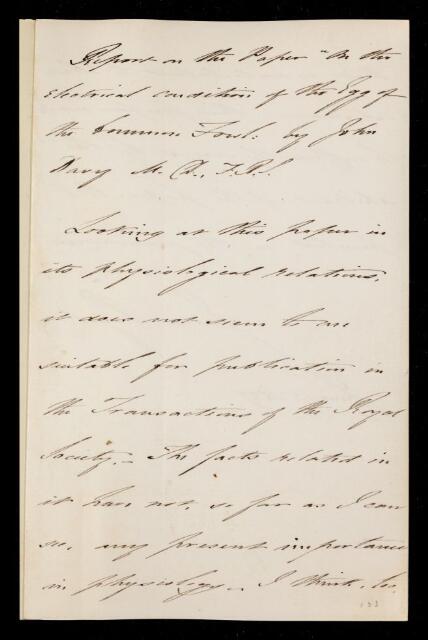 Report on the Paper "On the
Electrical condition of the Egg of
the Common Fowl: by John
Davy M.D., F.R.S.
Looking at this paper in
its physiological relations,
it does not seem to me
suitable for publication in
the Transactions of the Royal
Society. - The facts related in
it have not, so far as I can
see, any present importance
in physiology - I think, too
133